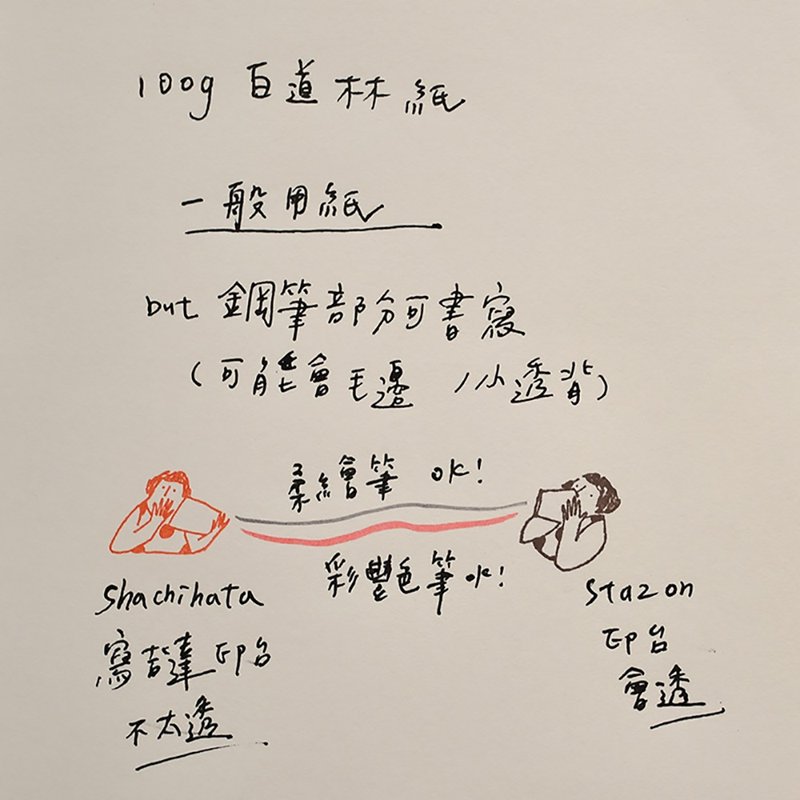 100g 百道林紙
一般用紙
but 鋼筆部分可書寫
(可能會毛邊 / 小透背)
柔繪筆 ok!
彩艷筆 ok!
Shachihata
寫吉達印台
不太透
Stazon
印台
會透